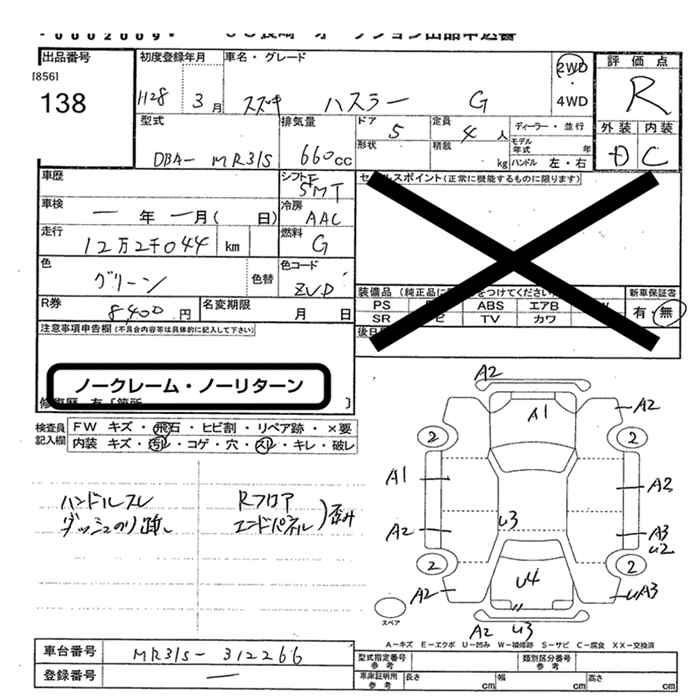 0002009
出品番号
[856]
138
初度登録年月
H28 3 月
車名・グレード
スズキ ハスラー G
2WD
・
4WD
評価点
R
外装 内装
D C
型式
DBA- MR31S
排気量
660cc
ドア 5
形状
定員 4 人
積載 kg
ディーラー・並行
モデル年式 年
ハンドル 左・右
車歴
シフト F
5MT
セールスポイント(正常に機能するものに限ります)
車検
一 年 一 月( 日)
冷房
AAC
走行
12万2千044 km
燃料
G
色
グリーン
色替
色コード
ZVD
R券
8,400 円
名変期限
月 日
装備品
PS
ABS エアB
SR
TV カワ
新車保証書
有・無
注意事項申告欄(不具合内容等は具体的に記入して下さい)
ノークレーム・ノーリターン
検査員記入欄
FW キズ・飛石・ヒビ割・リペア跡・×要
内装 キズ・汚レ・コゲ・穴・スレ・キレ・破レ
ハンドルスレ
ダッシュのり跡し
Rフロア
エンドパネル
)歪み
A2
A1
A2
2
2
A1
A2
U3
A2
A3
U2
2
2
U4
A2
UA3
A2 U3
スペア
A－キズ E－エクボ U－凹み W－補修跡 S－サビ C－腐食 XX－交換済
車台番号
MR31S- 312266
登録番号
―
型式指定番号
参考
類別区分番号
参考
車庫証明用
参考
長さ cm
幅 cm
高さ cm